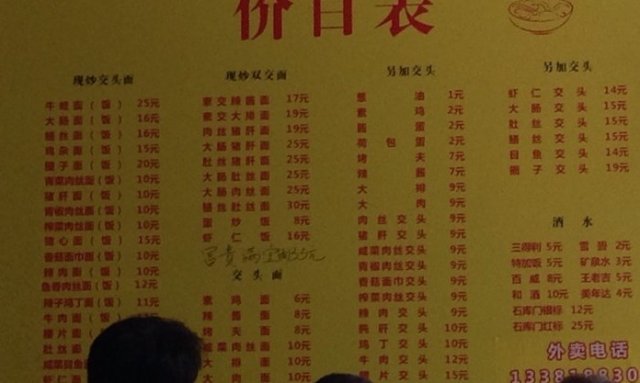 价目表
现炒交头面
牛蛙面（饭） 25元
大肠面（饭） 16元
鳝丝面（饭） 16元
鸡杂面（饭） 15元
腰子面（饭） 20元
青菜肉丝面（饭） 10元
猪肝面（饭） 10元
青椒肉丝面（饭） 10元
榨菜肉丝面（饭） 10元
猪心面（饭） 15元
香菇面巾面（饭） 10元
辣肉面（饭） 10元
鱼香肉丝面（饭） 12元
辣子鸡丁面（饭） 11元
牛肉面（饭） 12元
腰片面
肚丝面
咸菜目鱼面
虾仁面
现炒双交面
素交辣酱面 17元
素交大排面 19元
肉丝猪肝面 19元
大肠猪肝面 25元
肚丝猪肝面 25元
大肠肚丝面 25元
大肠肉丝面 25元
鳝丝肚丝面 30元
蛋炒饭 8元
虾仁 16元
交头面
素鸡面 6元
辣酱面 8元
烤夫面 8元
咸菜肉丝面 10元
大排面 10元
大肉面 10元
另加交头
葱油 1元
素鸡 2元
卤蛋 2元
荷包蛋 2元
烤夫 7元
辣酱 7元
大排 9元
大肉 9元
肉丝交头 9元
猪肝交头 9元
咸菜肉丝交头 9元
青椒肉丝交头 9元
香菇面巾交头 9元
榨菜肉丝交头 9元
辣肉交头 9元
肫肝交头 10元
鸡丁交头 10元
牛肉交头 12元
腰片交头 15元
另加交头
虾仁交头 14元
大肠交头 15元
肚丝交头 15元
鳝丝交头 15元
目鱼交头 14元
腰子交头 19元
酒水
三得利 5元 雪碧 2元
特加饭 5元 矿泉水 3元
百威 8元 王老吉 5元
和酒 10元 美年达 4元
石库门银标 12元
石库门红标 25元
外卖电话
133818830